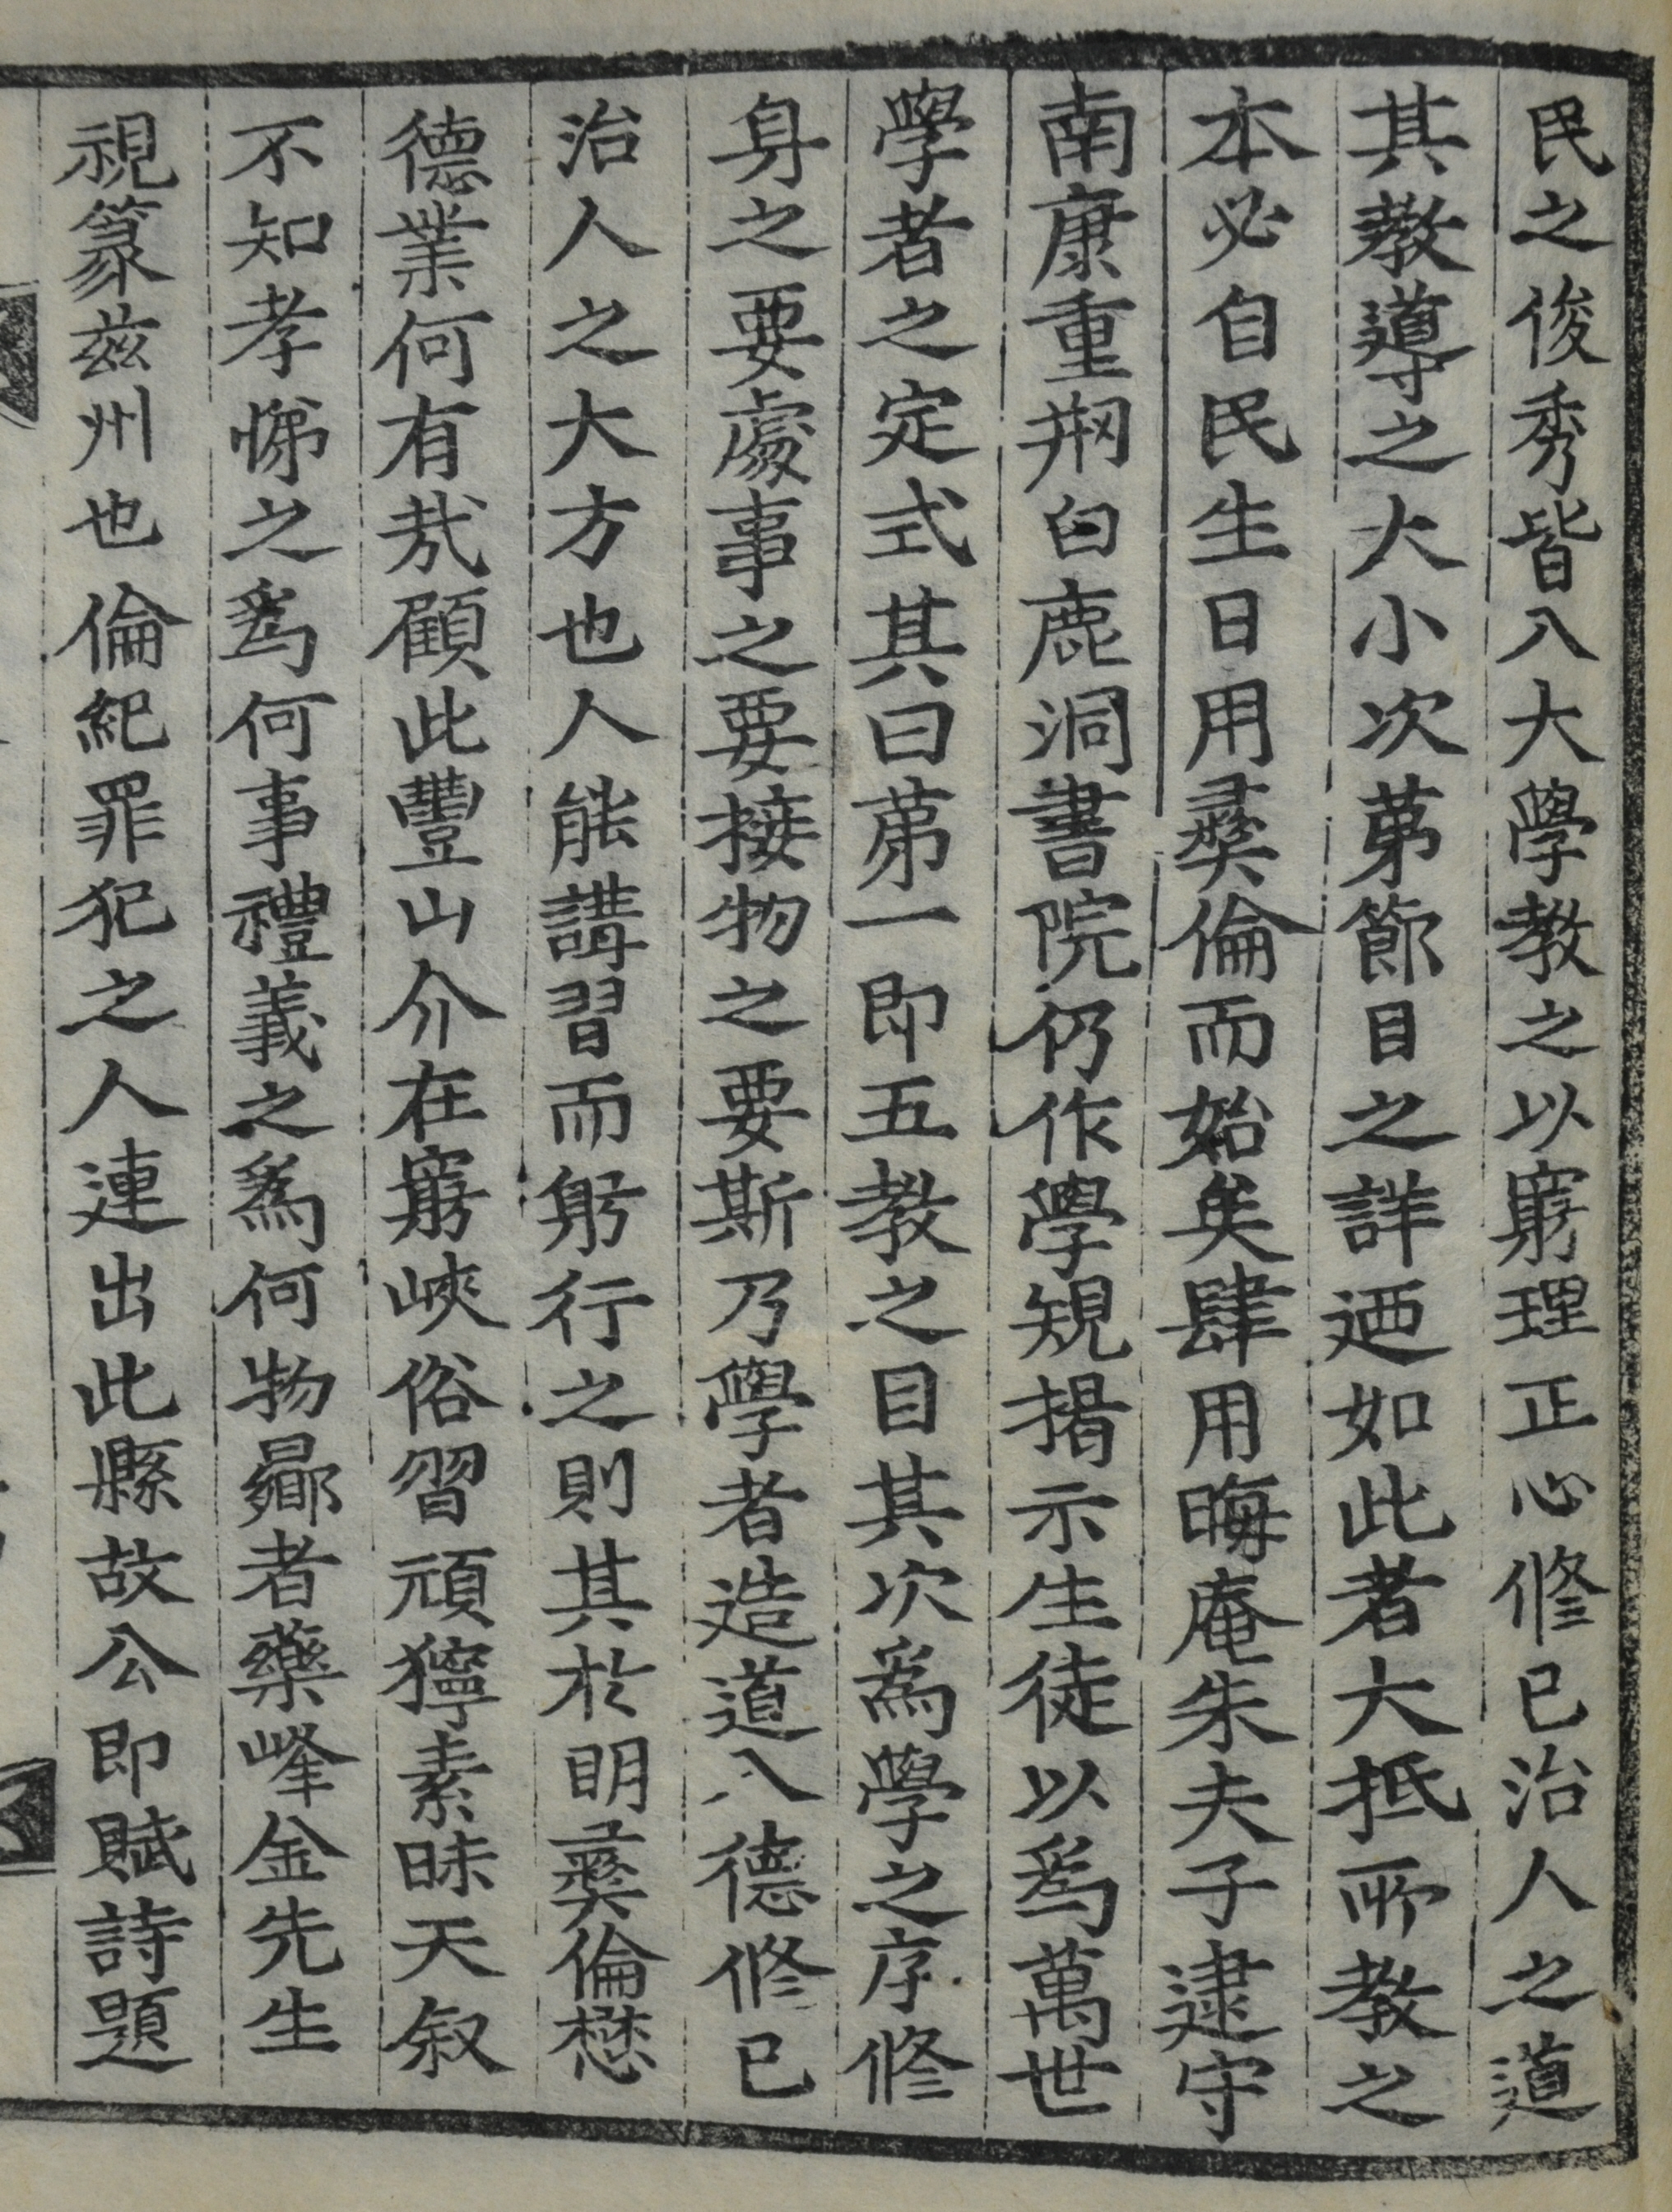 民之俊秀皆入大學教之以窮理正心修己治人之道
其教導之大小次第節目之詳迺如此者大抵所教之
本必自民生日用彛倫而始矣肆用晦庵朱夫子逮守
南康重刱白鹿洞書院仍作學規揭示生徒以爲萬世
學者之定式其曰第一即五教之目其次爲學之序修
身之要處事之要接物之要斯乃學者造道入德修己
治人之大方也人能講習而躬行之則其於明彛倫懋
德業何有㢤顧此豐山介在窮峽俗習頑獰素昧天叙
不知孝悌之爲何事禮義之爲何物曏者藥峰金先生
視篆茲州也倫紀罪犯之人連出此縣故公即賦詩題